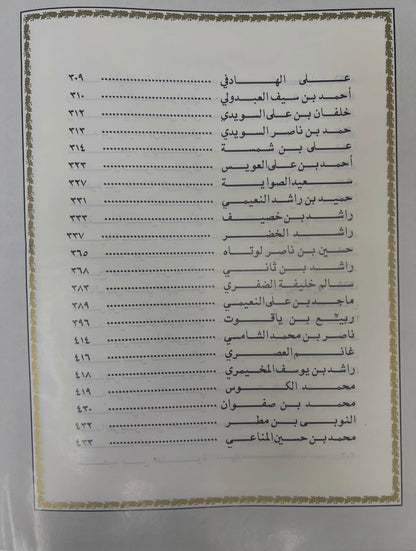 علي الهادفي ........................ ٣٠٩
أحمد بن سيف العبدولي ........................ ٣١٠
خلفان بن علي الويدي ........................ ٣١٢
حمد بن ناصر الويدي ........................ ٣١٣
علي بن شمسة ........................ ٣١٤
أحمد بن علي العويس ........................ ٣٢٣
سعيد الصواية ........................ ٣٢٧
حميد بن راشد النعيمي ........................ ٣٣١
راشد بن خصيف ........................ ٣٣٣
راشد الخضر ........................ ٣٣٧
حسين بن ناصر لوتاه ........................ ٣٦٥
راشد بن ثاني ........................ ٣٦٨
سالم خليفة الضفري ........................ ٣٨٣
ماجد بن علي النعيمي ........................ ٣٨٩
ربيع بن ياقوت ........................ ٣٩٦
ناصر بن محمد الشامسي ........................ ٤١٤
غانم العصري ........................ ٤١٦
راشد بن يوسف المخيمري ........................ ٤١٨
محمد الكوس ........................ ٤١٩
محمد بن صفوان ........................ ٤٣٠
النوبي بن مطر ........................ ٤٣٢
محمد بن حسين المناعي ........................ ٤٣٣